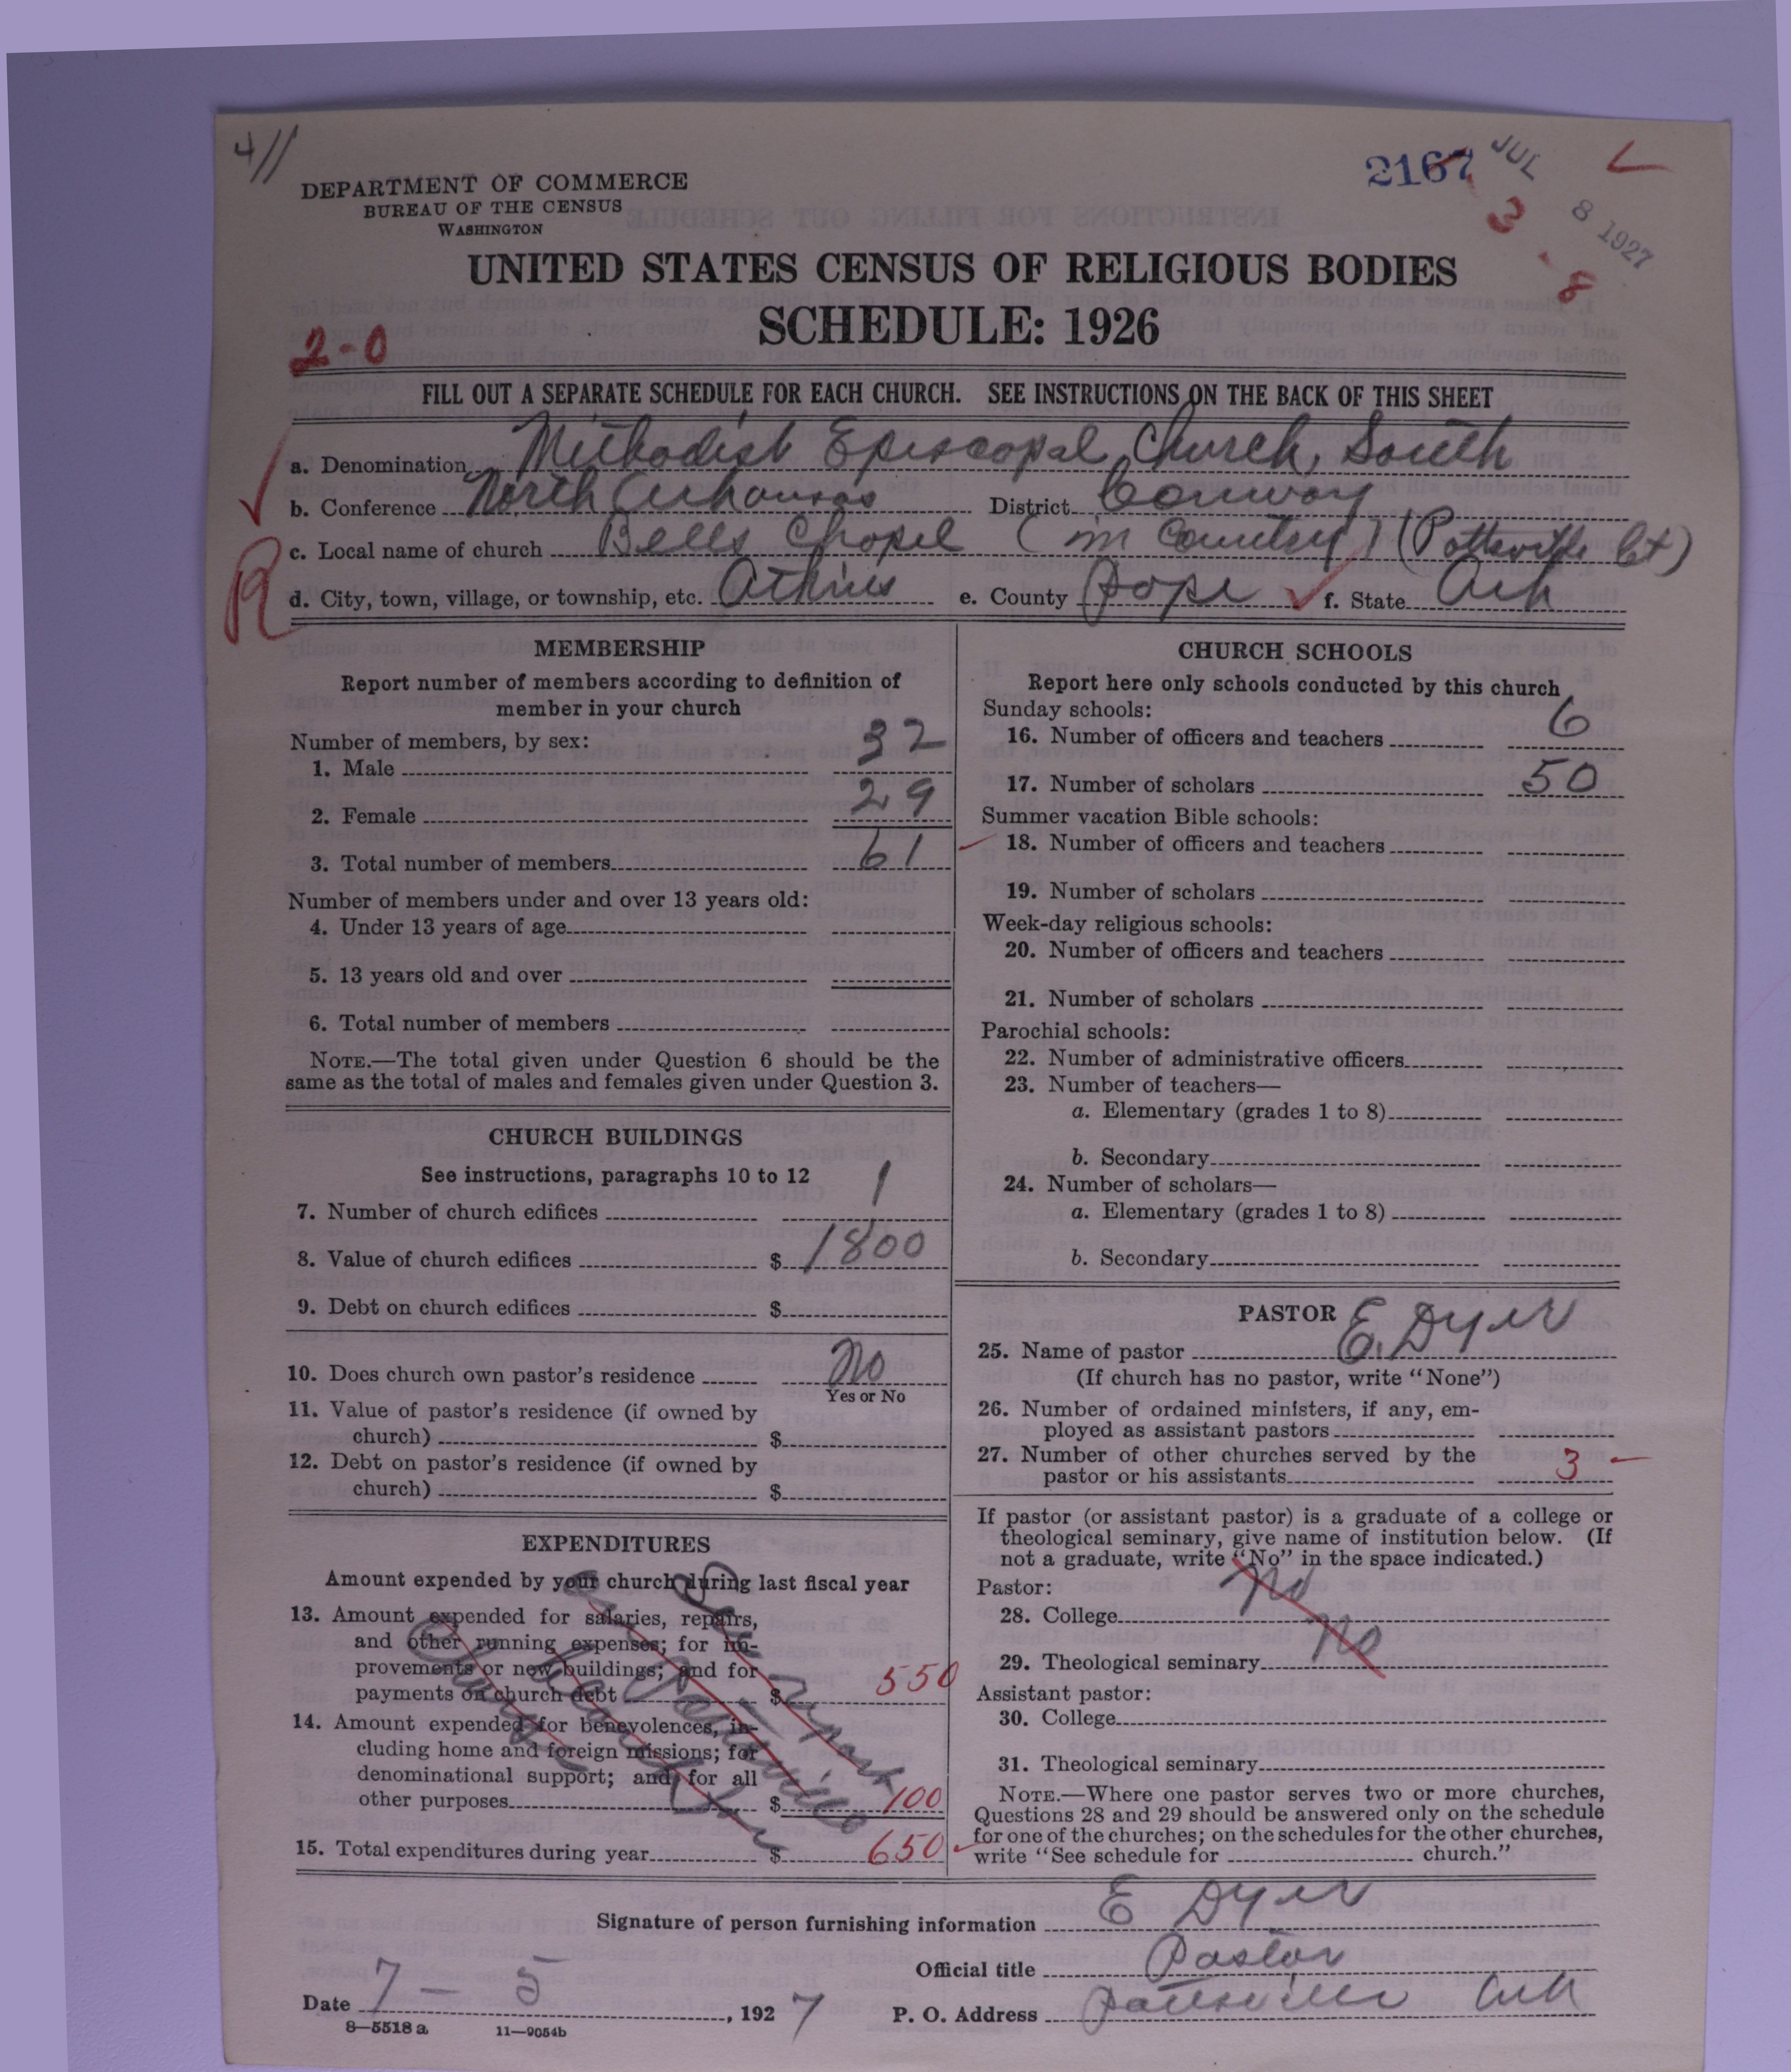 4//
2167 JUL 8 1927
3 - 8
DEPARTMENT OF COMMERCE
BUREAU OF THE CENSUS
WASHINGTON
UNITED STATES CENSUS OF RELIGIOUS BODIES
SCHEDULE: 1926
2-0
FILL OUT A SEPARATE SCHEDULE FOR EACH CHURCH. SEE INSTRUCTIONS ON THE BACK OF THIS SHEET
a. Denomination Methodist Episcopal Church, South
b. Conference North Arkansas District Conway
c. Local name of church Bells Chapel (in Country) (Pottsville Ct)
R
d. City, town, village, or township, etc. Atkins e. County Pope f. State Ark
MEMBERSHIP
Report number of members according to definition of
member in your church
Number of members, by sex:
1. Male 32
2. Female 29
3. Total number of members 61
Number of members under and over 13 years old:
4. Under 13 years of age
5. 13 years old and over
6. Total number of members
NOTE.—The total given under Question 6 should be the
same as the total of males and females given under Question 3.
CHURCH BUILDINGS
See instructions, paragraphs 10 to 12
7. Number of church edifices 1
8. Value of church edifices $ 1800
9. Debt on church edifices $
10. Does church own pastor's residence No
Yes or No
11. Value of pastor's residence (if owned by
church) $
12. Debt on pastor's residence (if owned by
church) $
EXPENDITURES
Amount expended by your church during last fiscal year
13. Amount expended for salaries, repairs,
and other running expenses; for im-
provements or new buildings; and for
payments on church debt $ 550
14. Amount expended for benevolences, in-
cluding home and foreign missions; for
denominational support; and for all
other purposes $ 100
15. Total expenditures during year $ 650
CHURCH SCHOOLS
Report here only schools conducted by this church
Sunday schools:
16. Number of officers and teachers 6
17. Number of scholars 50
Summer vacation Bible schools:
18. Number of officers and teachers
19. Number of scholars
Week-day religious schools:
20. Number of officers and teachers
21. Number of scholars
Parochial schools:
22. Number of administrative officers
23. Number of teachers—
a. Elementary (grades 1 to 8)
b. Secondary
24. Number of scholars—
a. Elementary (grades 1 to 8)
b. Secondary
PASTOR
25. Name of pastor E. Dyer
(If church has no pastor, write "None")
26. Number of ordained ministers, if any, em-
ployed as assistant pastors
27. Number of other churches served by the
pastor or his assistants 3
If pastor (or assistant pastor) is a graduate of a college or
theological seminary, give name of institution below. (If
not a graduate, write "No" in the space indicated.)
Pastor:
28. College No
29. Theological seminary No
Assistant pastor:
30. College
31. Theological seminary
NOTE.—Where one pastor serves two or more churches,
Questions 28 and 29 should be answered only on the schedule
for one of the churches; on the schedules for the other churches,
write "See schedule for church."
Signature of person furnishing information E Dyer
Official title Pastor
Date 7 - 5, 1927 P. O. Address Pottsville Ark
8—5518 a 11—9054b